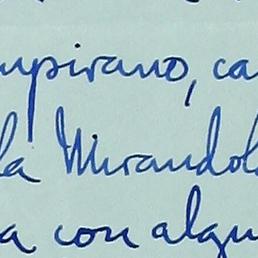 mpirano, ca
la Mirandol
a con algu